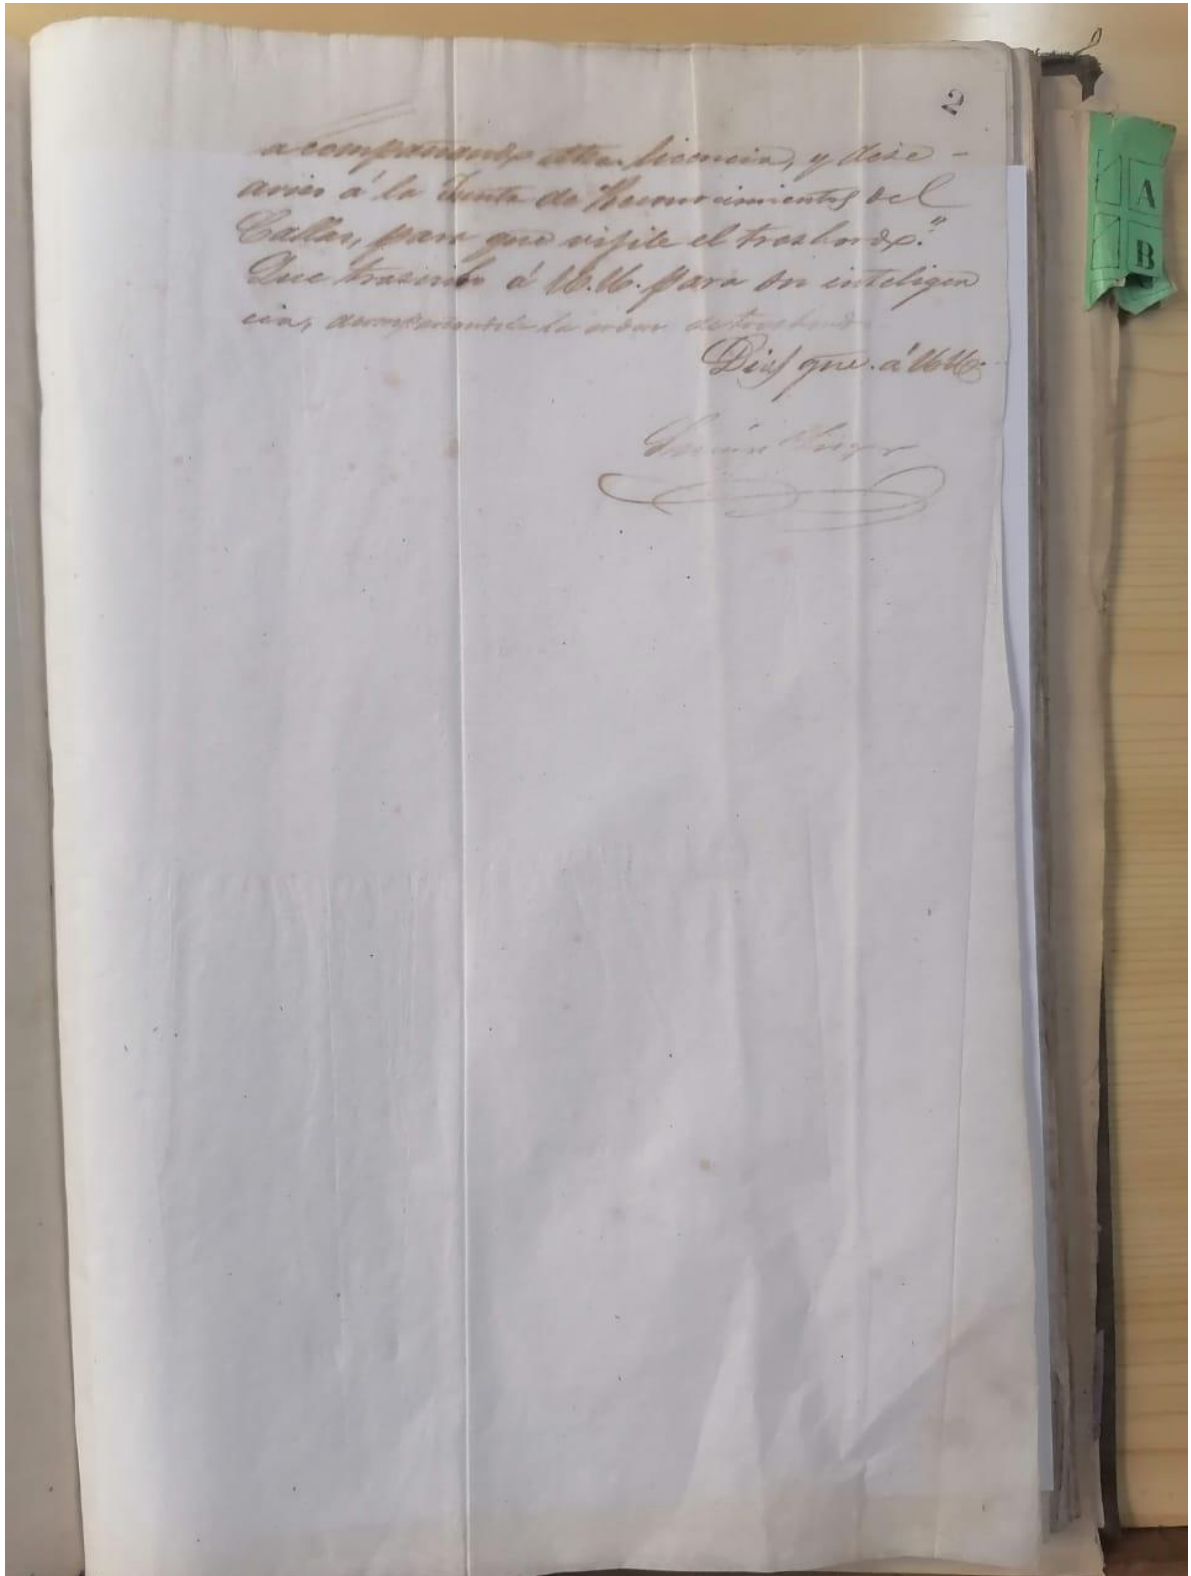 2
acompañando dha. licencia, y dése
aviso á la Junta de Reconocimientos del
Callao, para que vijile el trasbordo."
Que trascribo á UU. para su inteligen
cia, acompañandole la orden de trasbordo
Dios gue. á UU.
A
B